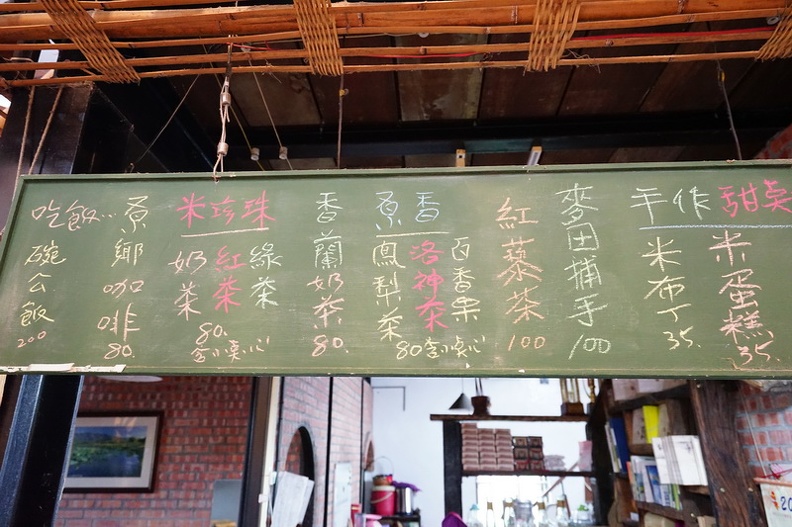 手作甜點
米蛋糕 35.
米布丁 35.
麥田捕手 100
紅藜茶 100
原香
百香果
洛神茶
鳳梨茶
80 含小點心
香蘭奶茶 80.
米珍珠
綠茶
紅茶
奶茶
80.
含小點心
原鄉咖啡 80.
吃飯...
碗公飯 200